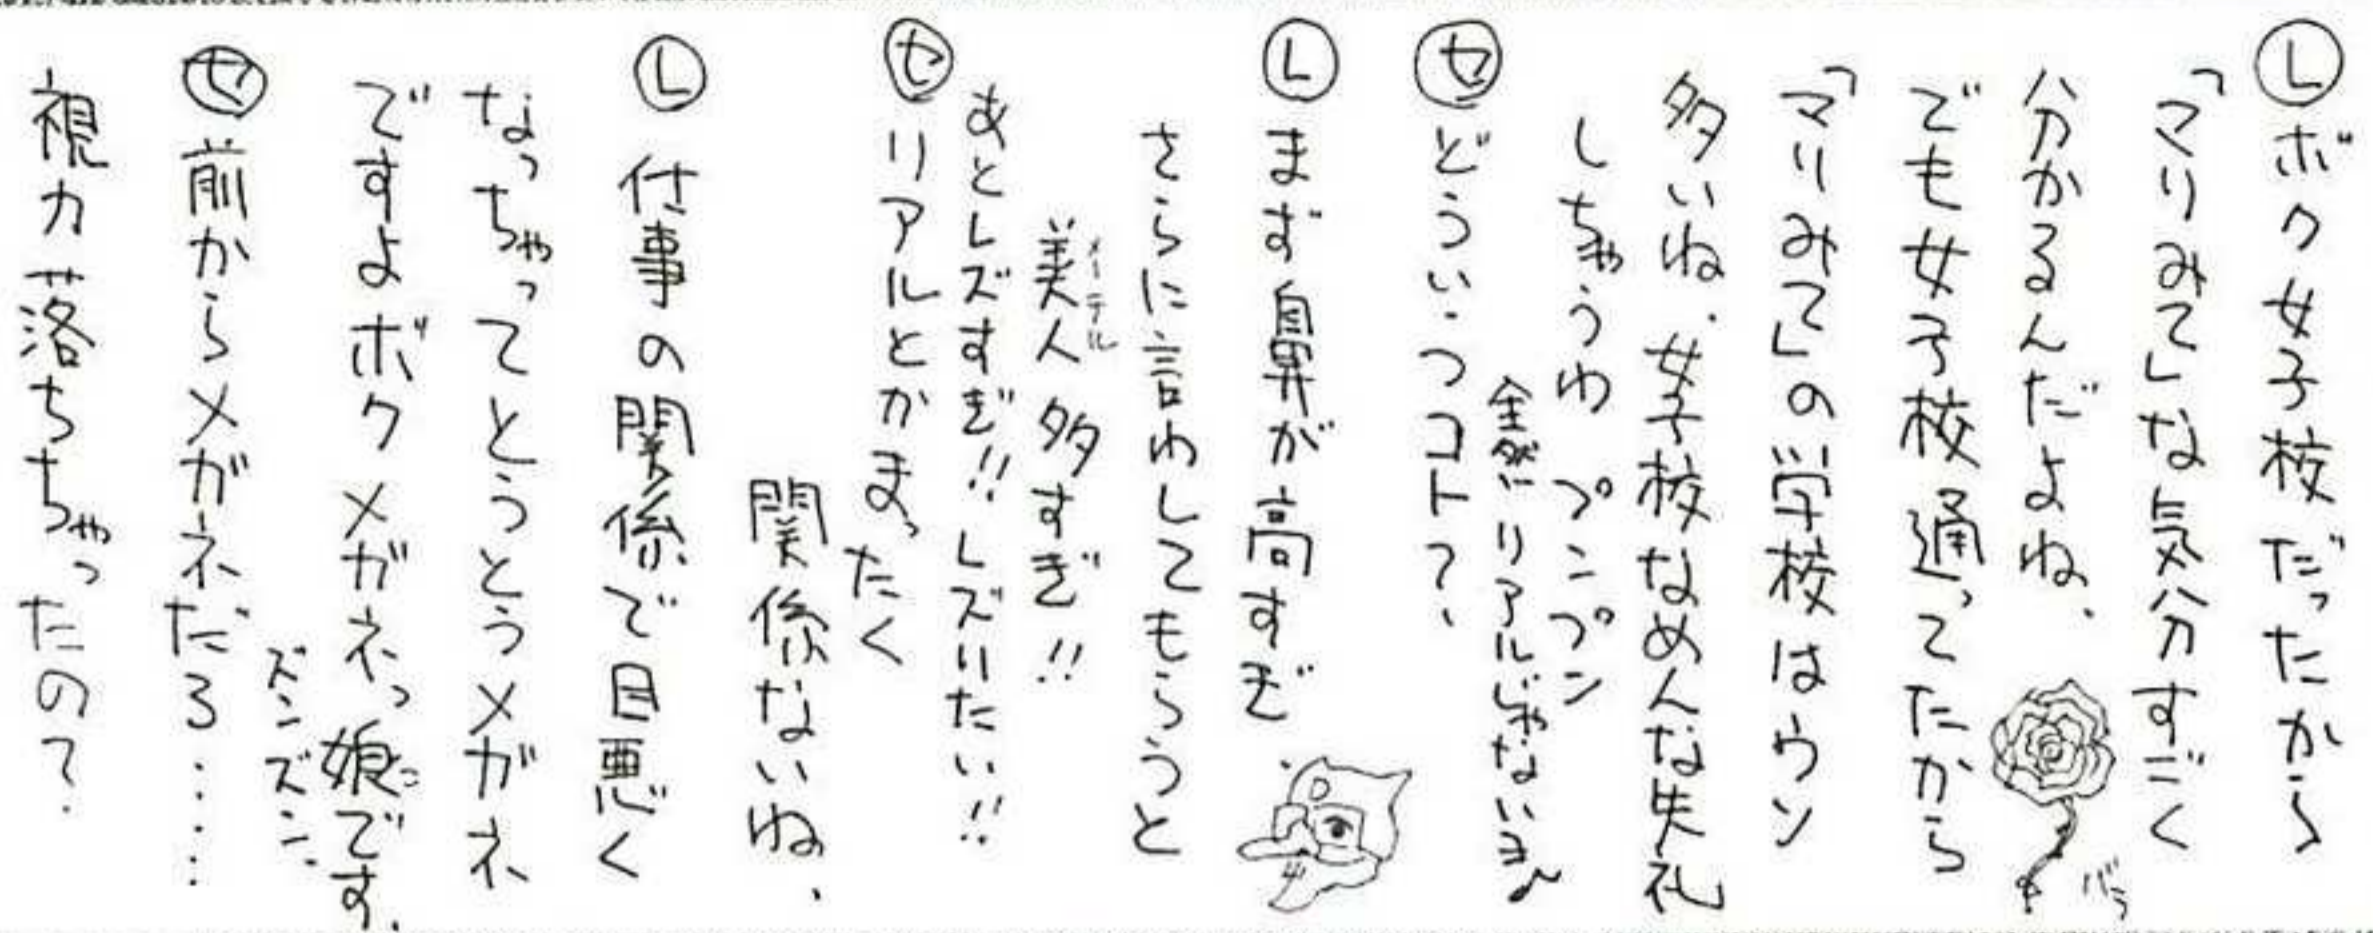 Ⓛボク女子校だったから
「マリみて」な気分すごく
分かるんだよね、
バラ
でも女子校通ってたから
「マリみて」の学校はウソ
多いね、女子校なめんな失礼
しちゃうわ プンプン
全然リアルじゃないヨ
㋝どういうコト?、
Ⓛまず鼻が高すぎ、
さらに言わしてもらうと
美人多すぎ!!
メーテル
あとレズすぎ!!レズりたい!!
㋝リアルとかまったく
関係ないね、
Ⓛ仕事の関係で目悪く
なっちゃってとうとうメガネ
ですよボクメガネっ娘です、
こ
ズンズン、
㋝前からメガネだろ……
視力落ちちゃったの?